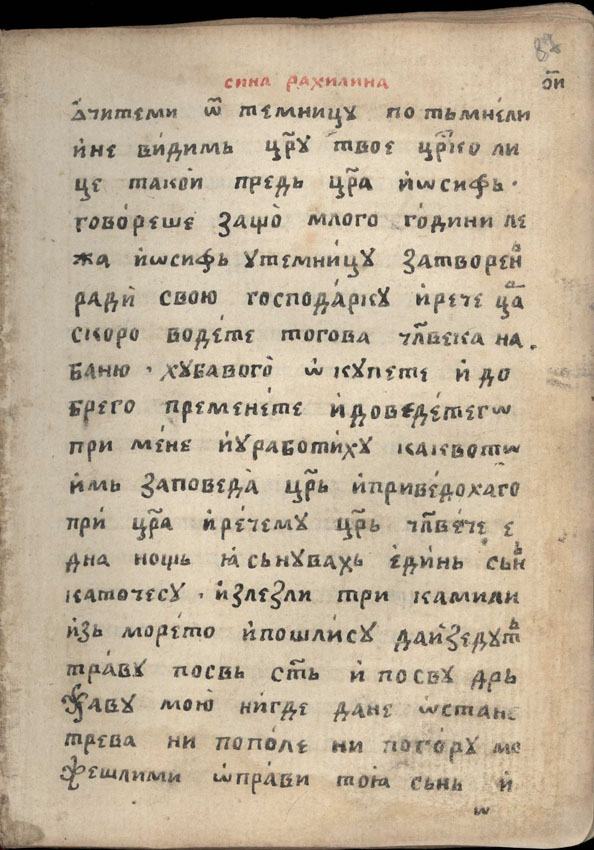 сина рахилина
ѻ҃и
ѻчитеми ѿ темницу потьмнели
и́не ви́димь цр҃у твое цр҃ко ли
це такои предь цр҃а и́ѡсифь ·
гово́реше защо̀ млого го́дини ле
жа и́ѡсифь у темни́цу затворенъ
ради́ свою господа́рку и́рече ца҃
скоро воде́те тогова чл҃века на
баню · хубавого̀ ѡ҆купете и́ до
брего премене́те и́доведе́тегѡ
при ме́не и́уработи́ху каквотѡ
и́мь заповеда̀ цр҃ь и́приве́дохаго
при́ цр҃а и́ре́чему цр҃ь чл҃ве́че е
дна нощь ꙗ сьнувахь еди́нь сьнъ
каточесу · и́злезли три камили
и́зь море́то и́пошли́су даи́зедутъ
тра́ву посвь сть҃ и́ посву дрь
жаву мою̀ ни́где дане ѡ҆стане
трева ни пополе ни погору мо
жешлими ѡ҆прави тоꙗ сьнь и́
ѡ